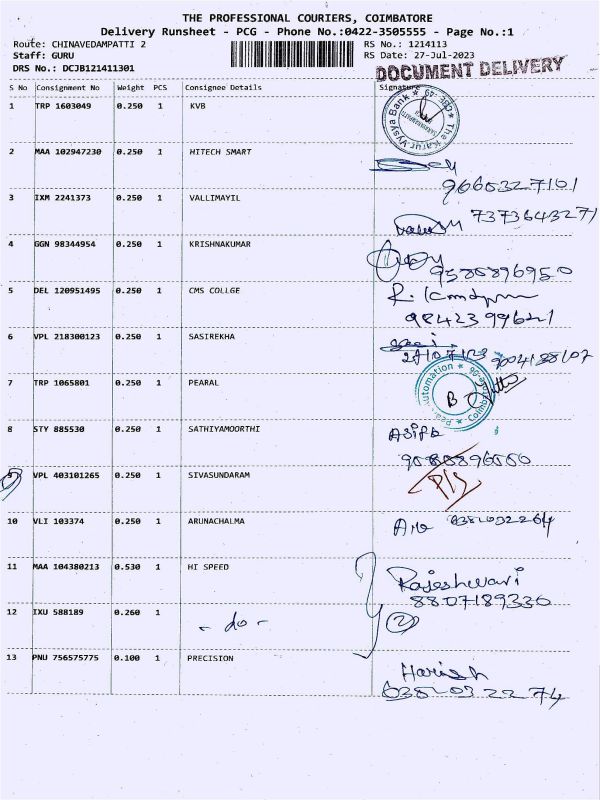 THE PROFESSIONAL COURIERS, COIMBATORE
Delivery Runsheet - PCG - Phone No.:0422-3505555 - Page No.:1
Route: CHINAVEDAMPATTI 2 RS No.: 1214113
Staff: GURU RS Date: 27-Jul-2023
DRS No.: DCJB121411301
DOCUMENT DELIVERY
S No Consignment No Weight PCS Consignee Details Signature
1 TRP 1603049 0.250 1 KVB
The Karur Vysya Bank
2 MAA 102947230 0.250 1 HITECH SMART
9660327101
3 IXM 2241373 0.250 1 VALLIMAYIL
7373643271
4 GGN 98344954 0.250 1 KRISHNAKUMAR
9580896950
5 DEL 120951495 0.250 1 CMS COLLGE
R.
6 VPL 218300123 0.250 1 SASIREKHA
7 TRP 1065801 0.250 1 PEARAL
8 STY 885530 0.250 1 SATHIYAMOORTHI
9 VPL 403101265 0.250 1 SIVASUNDARAM
P/S
10 VLI 103374 0.250 1 ARUNACHALMA
11 MAA 104380213 0.530 1 HI SPEED
Rajeshwari
8807189330
12 IXU 588189 0.260 1 - do - 2
13 PNU 756575775 0.100 1 PRECISION
Harish